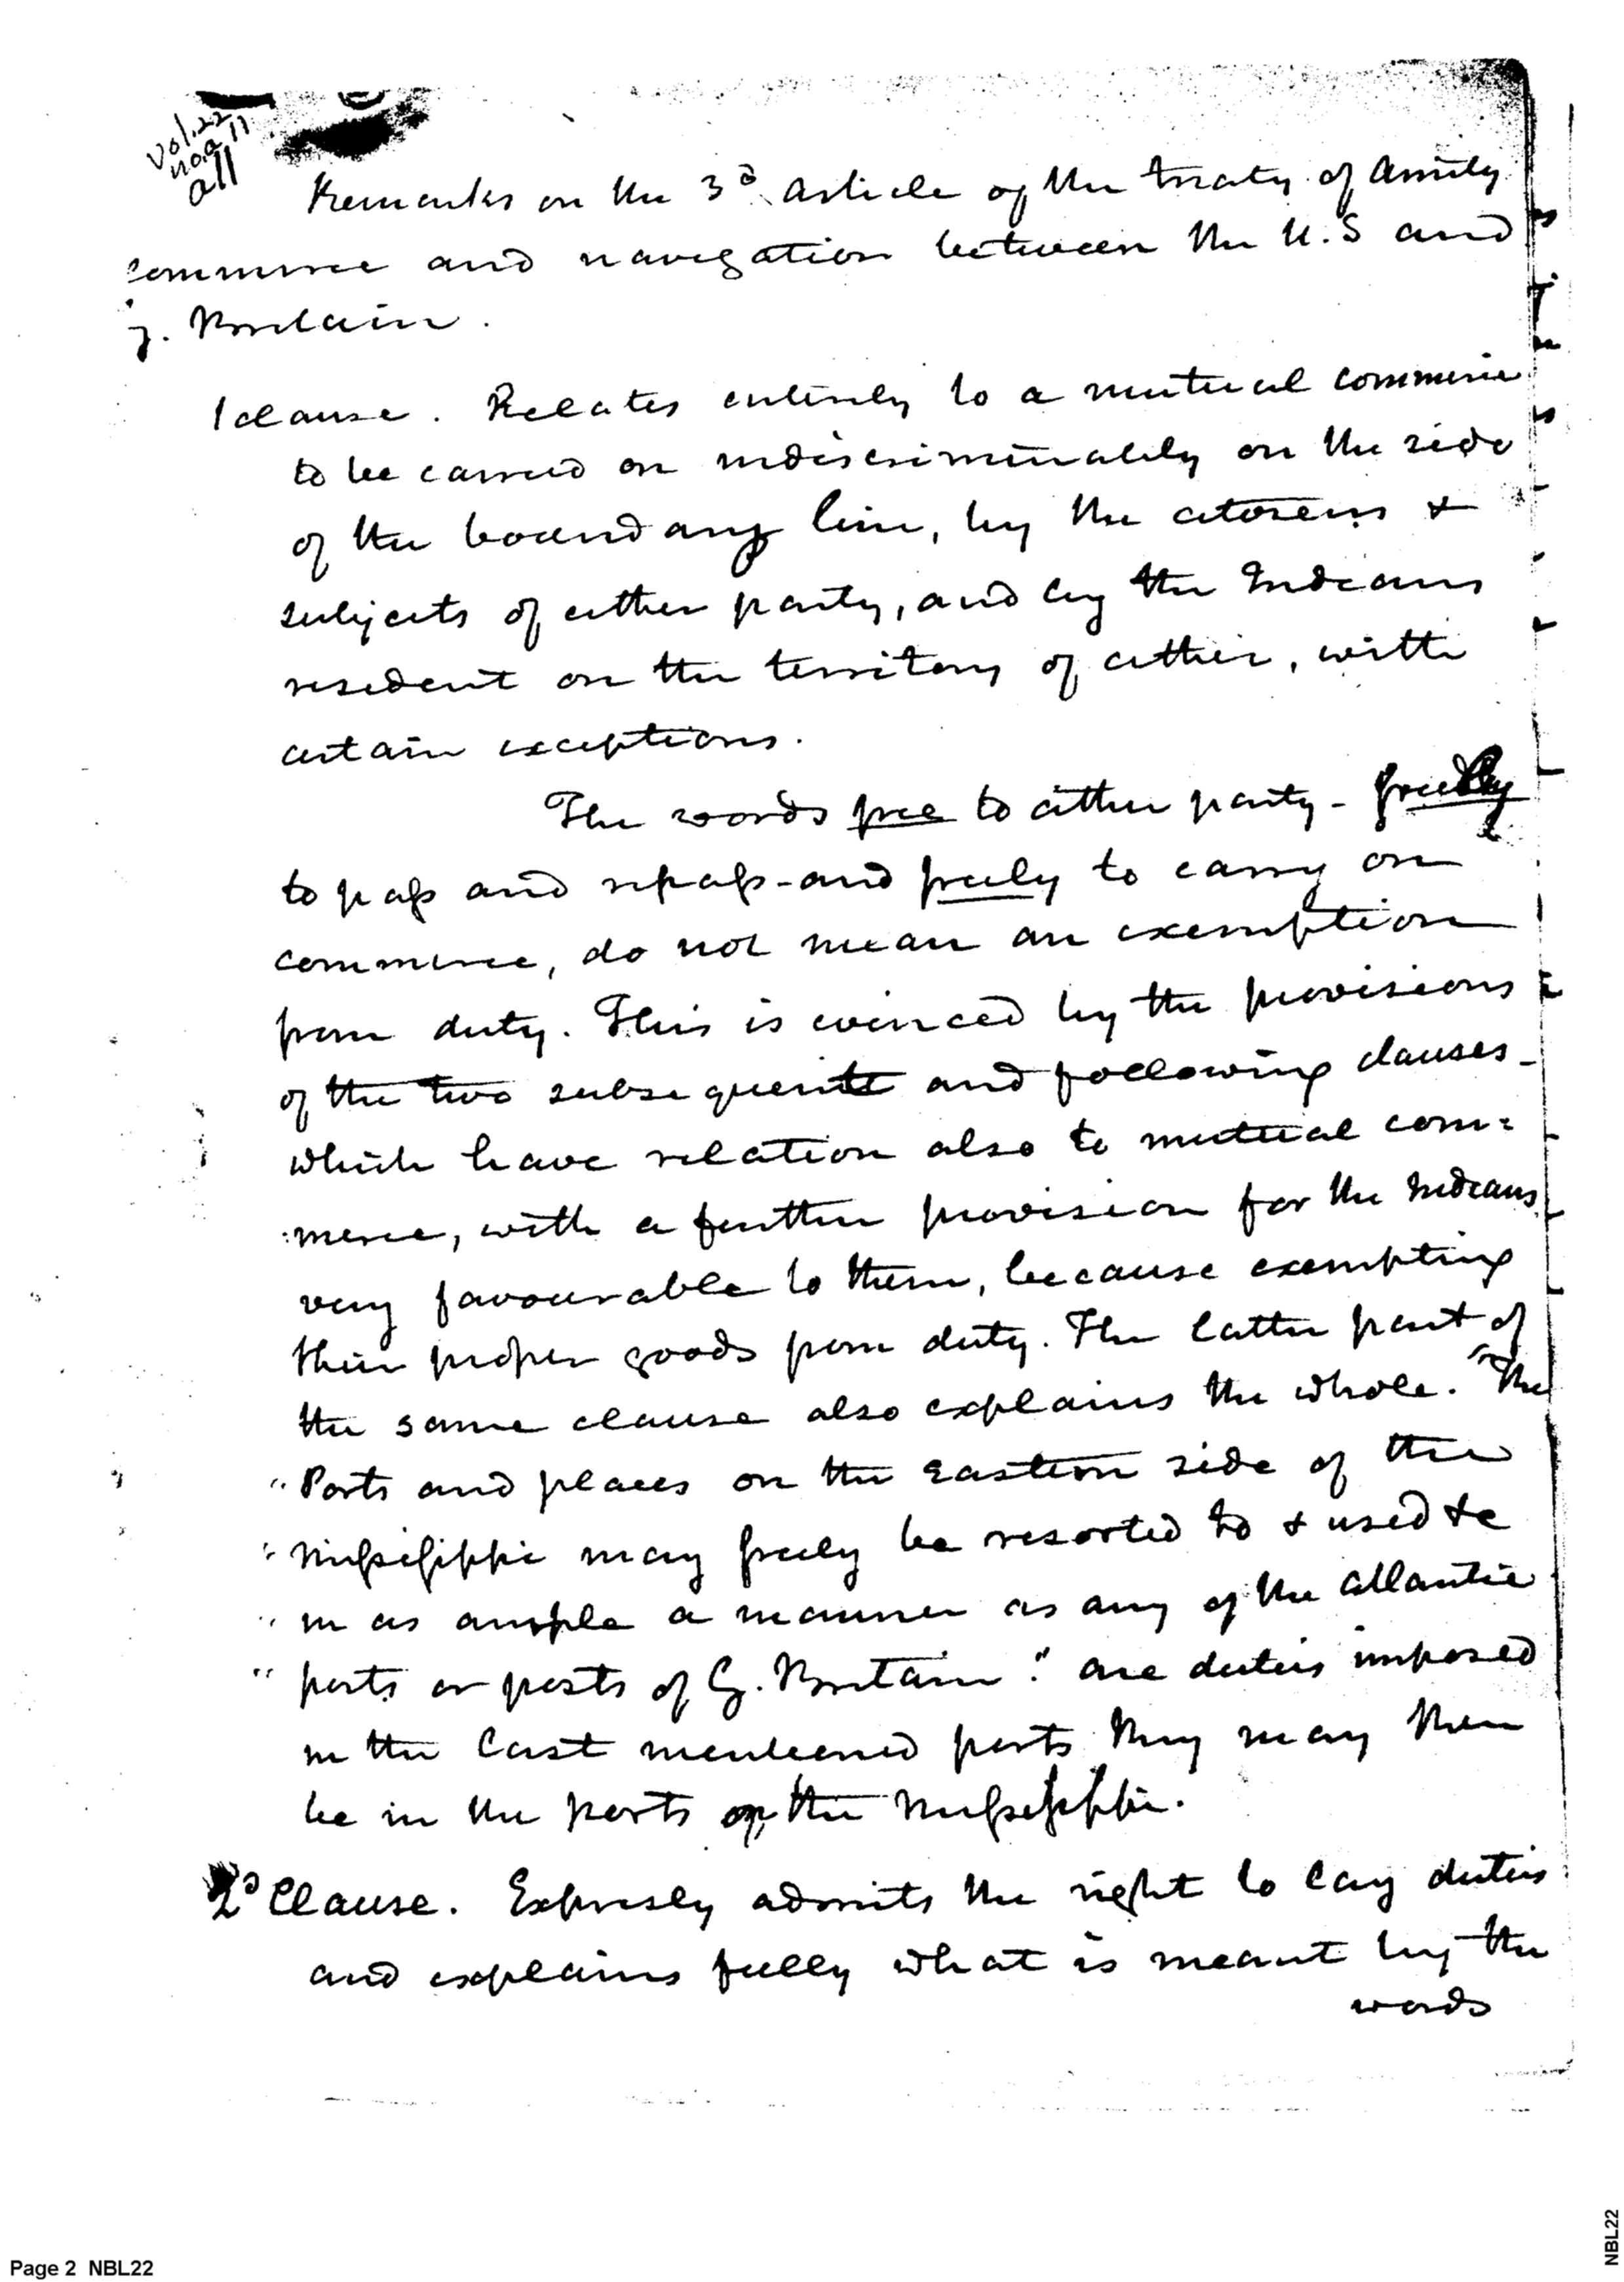 Vol. 22
no. a 11
all
Remarks on the 3d. article of the treaty of Amity
commerce and navigation between the U.S and
g. Britain.
1 clause. Relates entirely to a mutual commerce
to be carried on indiscriminately on the side
of the boundary line, by the citizens &
subjects of either party, and by the Indians
resident on the territory of either, with
certain exceptions.
The words free to either party - freely
to pass and repass - and freely to carry on
commerce, do not mean an exemption
from duty. This is evinced by the provisions
of the two subsequent and following clauses -
which have relation also to mutual com=
:merce, with a further provision for the Indians
very favourable to them, because exempting
their proper goods from duty. The latter part of
the same clause also explains the whole. "The
"Ports and places on the eastern side of the
"Missisippi may freely be resorted to & used &c
"in as ample a manner as any of the atlantic
"ports or ports of G. Britain." are duties imposed
in the last mentioned ports they may then
be in the ports on the Missisippi.
2d Clause. Expresly admits the right to lay duties
and explains fully what is meant by the
words
Page 2 NBL22
NBL22